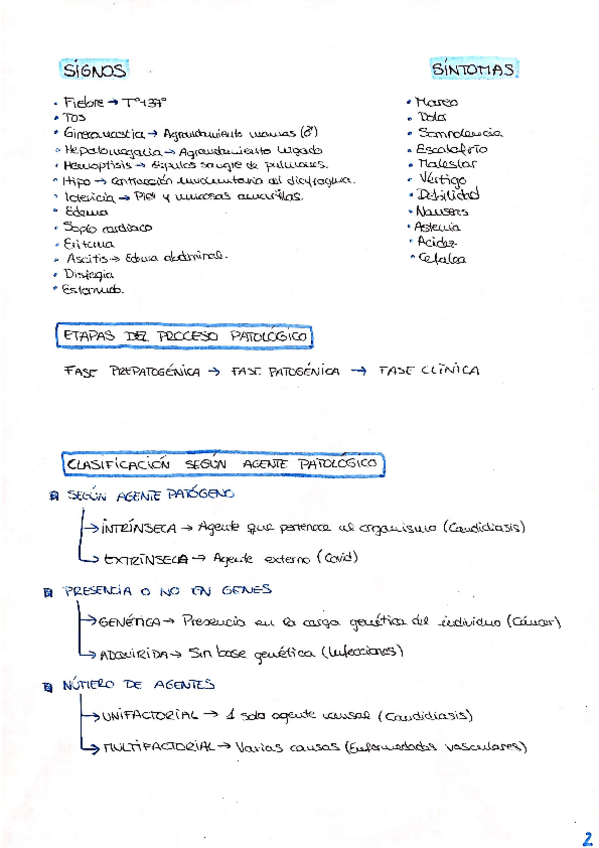 SIGNOS
• Fiebre → Tº+37º
• Tos
• Ginecomastia → Agrandamiento mamas (♂)
• Hepatomegalia → Agrandamiento hígado
• Hemoptisis → Esputos sangre de pulmones.
• Hipo → Contracción involuntaria del diafragma.
• Ictericia → Piel y mucosas amarillas.
• Edema
• Soplo cardíaco
• Eritema
• Ascitis → Edema abdominal.
• Disfagia
• Estornudo.
SÍNTOMAS
• Mareo
• Dolor
• Somnolencia
• Escalofrío
• Malestar
• Vértigo
• Debilidad
• Nauseas
• Astenia
• Acidez
• Cefalea
ETAPAS DEL PROCESO PATOLÓGICO
FASE PREPATOGÉNICA → FASE PATOGÉNICA → FASE CLÍNICA
CLASIFICACIÓN SEGÚN AGENTE PATOLÓGICO
SEGÚN AGENTE PATÓGENO
→ INTRÍNSECA → Agente que pertenece al organismo (Candidiasis)
→ EXTRÍNSECA → Agente externo (Covid)
PRESENCIA O NO EN GENES
→ GENÉTICA → Presencia en la carga genética del individuo (Cáncer)
→ ADQUIRIDA → Sin base genética (Infecciones)
NÚMERO DE AGENTES
→ UNIFACTORIAL → 1 solo agente causal (Candidiasis)
→ MULTIFACTORIAL → Varias causas (Enfermedades vasculares)
2